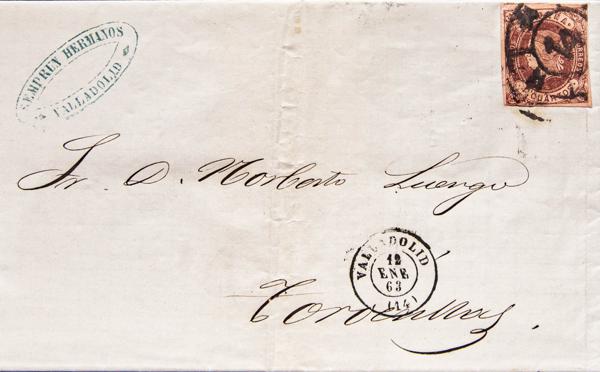 SEMPRUN HERMANOS
VALLADOLID
CORREOS
4 CUARTOS
Sr. D. Norberto Luengo
VALLADOLID
12
ENE
63
(14)
Tordesillas